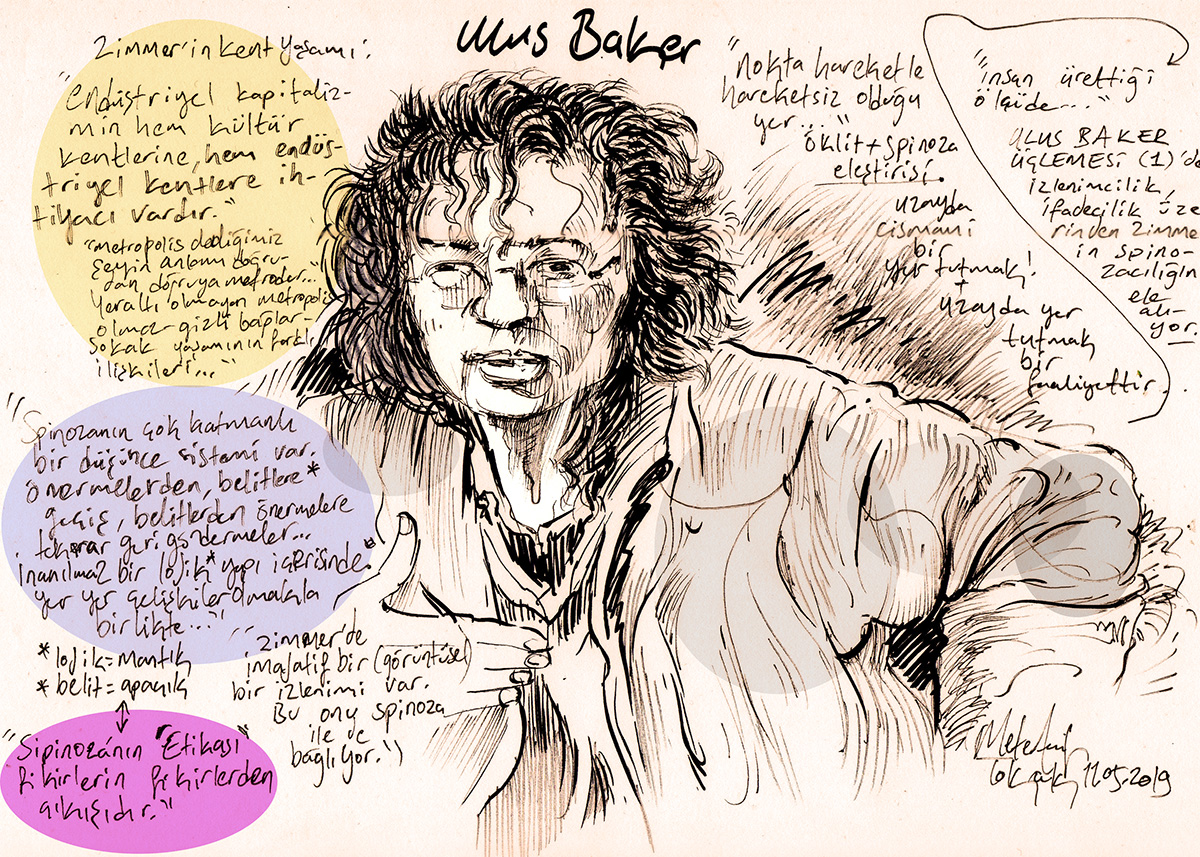 Ulus Baker
Zimmer'in kent yaşamı:
"endüstriyel kapitaliz-
min hem kültür
kentlerine, hem endüs-
triyel kentlere ih-
tiyacı vardır."
"metropolis dediğimiz
şeyin anlamı doğru-
dan doğruya metrodur...
Yeraltı olmayan metropolis
olmaz- gizli bağlar-
sokak yaşamının farklı
ilişkileri..."
"Spinozanın çok katmanlı
bir düşünce sistemi var.
önermelerden, belitlere*
geçiş, belitlerden önermelere
tekrar geri göndermeler...
inanılmaz bir lojik* yapı içerisinde.
yer yer çelişkiler olmakla
birlikte..."
* lojik = mantık
* belit = apaçık
"Sipinoza'nın "Etikası"
fikirlerin fikirlerden
çıkışıdır."
"Zimmer'de
imajatif bir (görüntüsel)
bir izlenimi var.
Bu onu spinoza
ile de
bağlıyor.")
"nokta hareketle
hareketsiz olduğu
yer....."
öklit + spinoza
eleştirisi.
uzayda
cismani
bir
yer tutmak!
+
uzayda yer
tutmak
bir
faaliyettir.
"insan ürettiği
ölçüde..."
ULUS BAKER
ÜÇLEMESİ (1)'de
izlenimcilik,
ifadecilik üze
rinden Zimme
in spino-
zacılığın
ele
alı-
yor.
11.05.2019